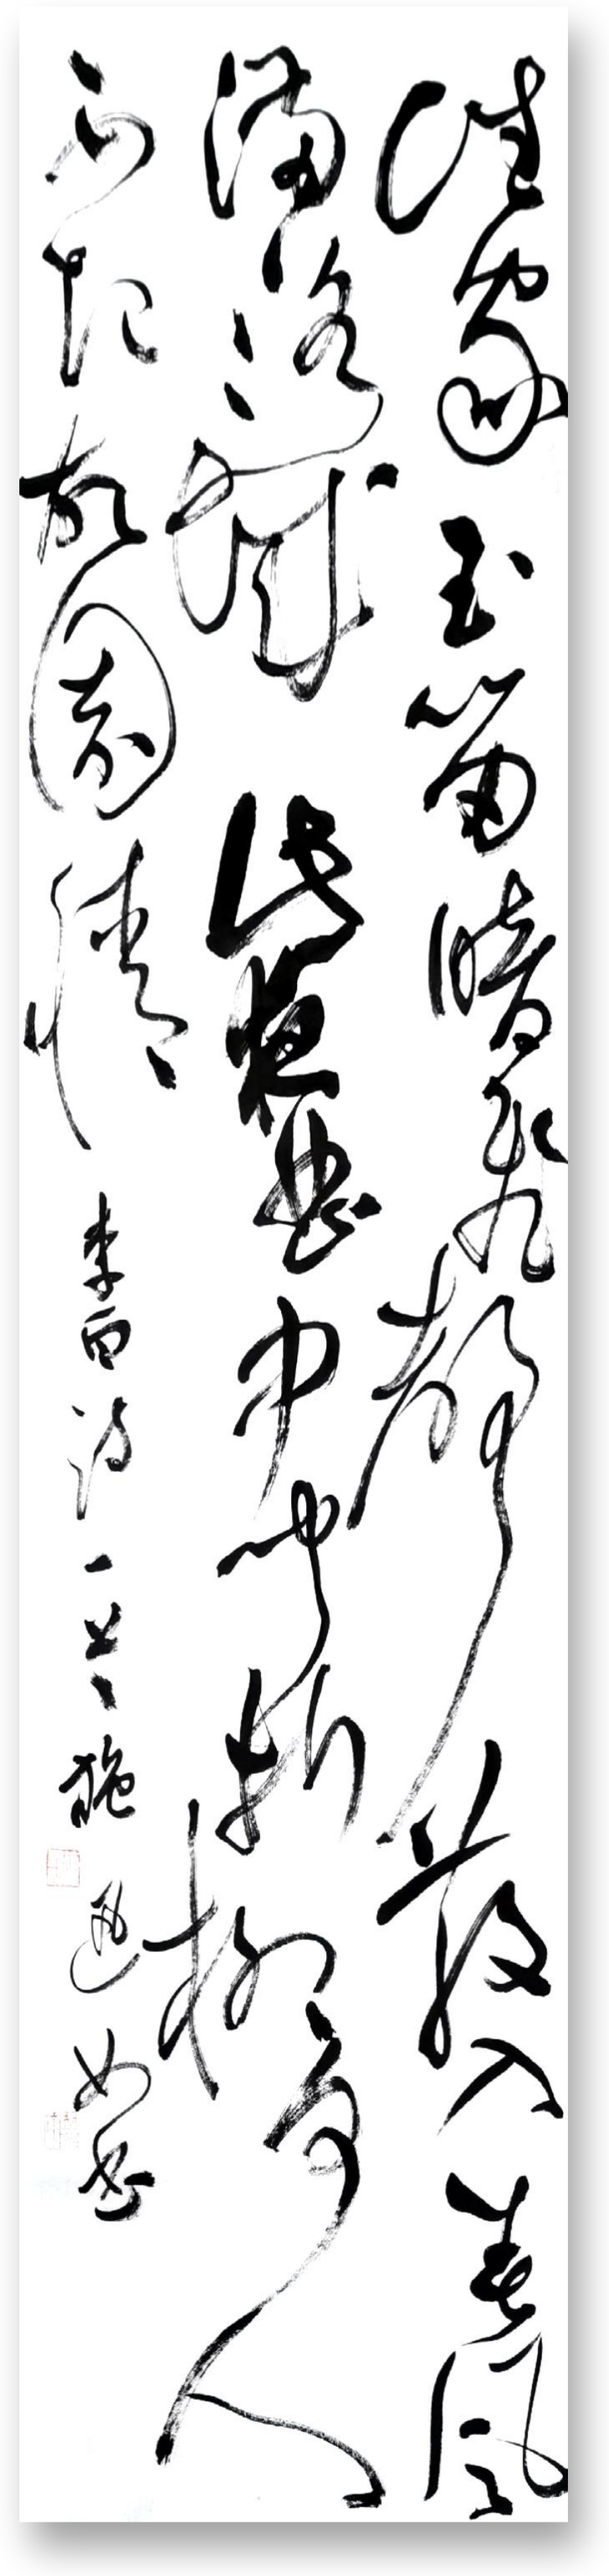 誰家玉笛暗飛聲散入春風
滿洛城此夜曲中聞折柳何人
不起故園情 李白詩一首 施 如書